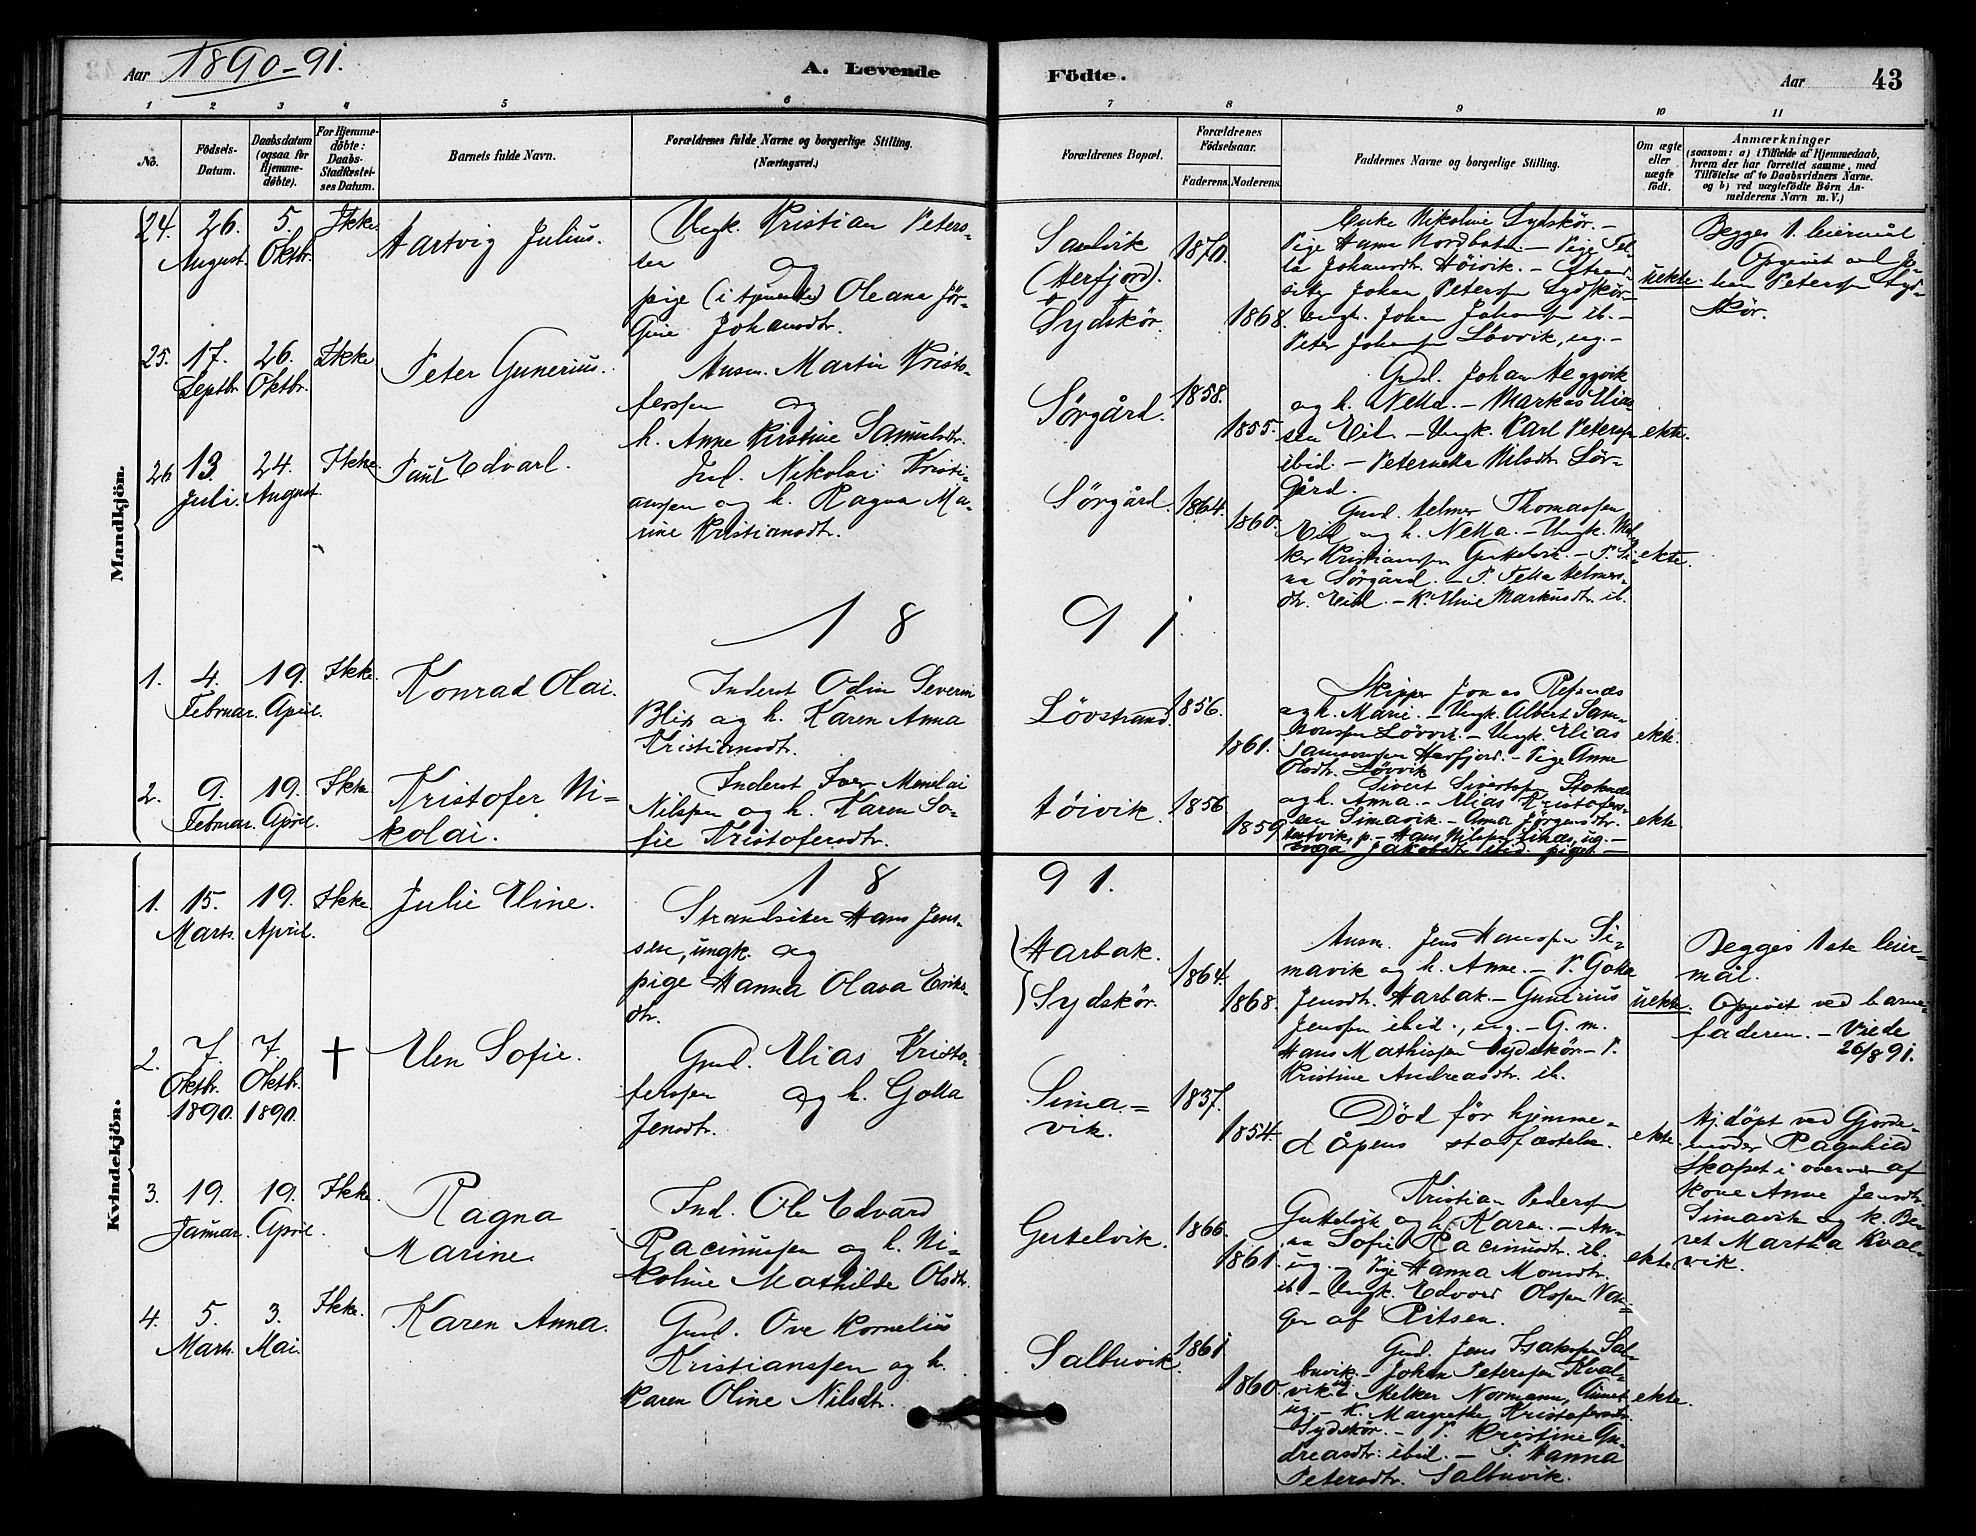 Aar 1890-91.
A. Levende
Födte.
Aar
43
1 2 3 4 5 6 7 8 9 10 11
No.
Födsels-
Datum.
Daabsdatum
(ogsaa for
Hjemme-
döbte).
For Hjemme-
döbte:
Daabs-
Stadfæstel-
ses Datum.
Barnets fulde Navn.
Forældrenes fulde Navne og borgerlige Stilling.
(Næringsvei.)
Forældrenes Bopæl.
Forældrenes
Födselsaar.
Faderens. Moderens.
Faddernes Navne og borgerlige Stilling.
Om ægte
eller
uægte
födt.
Anmærkninger
(saasom: a) i Tilfælde af Hjemmedaab,
hvem der har forrettet samme, med
Tilföielse af to Daabsvidners Navne,
og b) ved uægtefödte Börn An-
melderens Navn m.V.)
Mandkjön.
24.
26.
August.
5.
Oktbr.
Ikke.
Hartvig Julius.
Ungk. Kristian Peters-
sen og
pige (i tjeneste) Oleana Jör-
gine Johansdtr.
Sandvik
(Herfjord).
+
Sydskör.
1870.
1868.
Enke Nikoline Sydskör. –
Pige Hanna Nordbotn. – Pige Pet-
ra Johansdtr. Höivik. – Strand-
sitter Johan Petersen Sydskör –
Ungk. Johan Johansen ib. –
Peter Johansen Lövvik, ug. –
uekte.
Begges 1. leiermål
Opgivet av Jo-
han Petersen Syd-
skör.
25.
17.
Septbr.
26.
Oktbr.
Ikke
Peter Gunerius.
Husm. Martin Kristo-
fersen og
h. Anne Kristine Samuelsdtr.
Sörgård.
1858.
1855.
Gmd. Johan Heggvik
og h. Netta. – Markus Elias-
sen Eid – Ungk. Karl Petersen
ibid. – Peterneka Nilsdtr. Sör-
gård.
ekte.
26
13.
Juli.
24.
August.
Ikke.
Paul Edvard.
Ind. Nikolai Kristi-
anssen og h. Ragna Ma-
rine Kristiansdtr.
Sörgård.
1864.
1860.
Gmd. Helmer Thomassen
Eid og h. Netta. – Ungk. Mel-
ker Kristiansen Gutelvik. – P. Si-
na Sörgård. – P. Petta Helmers-
dtr. Eid. – K. Eline Markusdtr. ib.
ekte.
18 91.
1.
4.
Februar.
19.
April.
Ikke.
Konrad Olai.
Inderst Odin Severin
Blix og h. Karen Anna
Kristiansdtr.
Lövstrand.
1856.
1861.
Skipper Jonas Refsnes
og h. Marie. – Ungk. Albert Sam-
sonsen Lövvik. – Ungk. Elias
Samsonsen Herfjord. – Pige Anne
Olsdtr. Lövvik
ekte.
2.
9.
Februar.
19.
April.
Ikke
Kristofer Ni-
kolai.
Inderst Iver Menelai
Nilssen og h. Karen So-
fie Kristofersdtr.
Höivik.
1856
1859
Sivert Sivertsen Stoknes
og h. Anna. – Elias Kristofers-
sen Simavik. – Anna Jörgensdtr.
p. – Hans Nilssen Lines, ug. –
Jakobsdtr. ibid. pige. –
ekte.
Kvindekjön.
18 91.
1.
15.
Marts.
19.
April.
Ikke
Julie Eline.
Strandsitter Hans Jens-
sen, ungk. og
pige Hanna Olava Eriks-
dtr.
Harbak.
Sydskör.
1864.
1868.
Husm. Jens Hanssen Si-
mavik og h. Anne. – P. Golla
Jensdtr. Harbak. – Gunerius
Jenssen ibid., ug. – G.m.
Hans Mathissen Sydskör – P.
Kristine Andreasdtr. ib.
uekte.
Begges 1ste leier-
mål.
Opgivet ved barne-
faderen. – Viede
26/8 91.
2.
7.
Oktbr.
1890.
7.
Oktbr.
1890.
+
Elen Sofie.
Gmd. Elias Kristo-
fersen og h. Golla
Jensdtr.
Sima-
vik.
1837.
1854.
Död för hjemme-
dåpens stadfæstelse.
ekte.
Hj. döpt ved Gjorde-
moder Ragnhild
Skapst i overvær af
kone Anne Jensdtr.
Simavik og k. Be-
ret Martha Kval-
vik.
3.
19.
Januar.
19.
April.
Ikke.
Ragna
Marine.
Ind. Ole Edvard
Racinussen og h. Ni-
koline Mathilde Olsdtr.
Gutelvik.
1866.
1861.
Kristian Pedersen
Guttelvik og h. Karen. – An-
na Sofie Racinusdtr. ib.
ug. – Pige Hanna Monsdtr.
ib – Ungk. Edvard Olssen Van-
gen af Ritsen.
ekte
4.
5.
Marts.
3.
Mai.
Ikke.
Karen Anna.
Gmd. Ove Kornelius
Kristianssen og h.
Karen Oline Nilsdtr.
Salbuvik.
1861
1860.
Gmd. Jens Isaksen Sal-
buvik. – Johan Petersen Kval-
vik ug – Melker Normann,
ug. – K. Margrethe Kristofersdtr.
Sydskör. – P. Kristine An-
dreasdtr. ibid. – P. Hanna
Petersdtr. Salbuvik.
ekte.